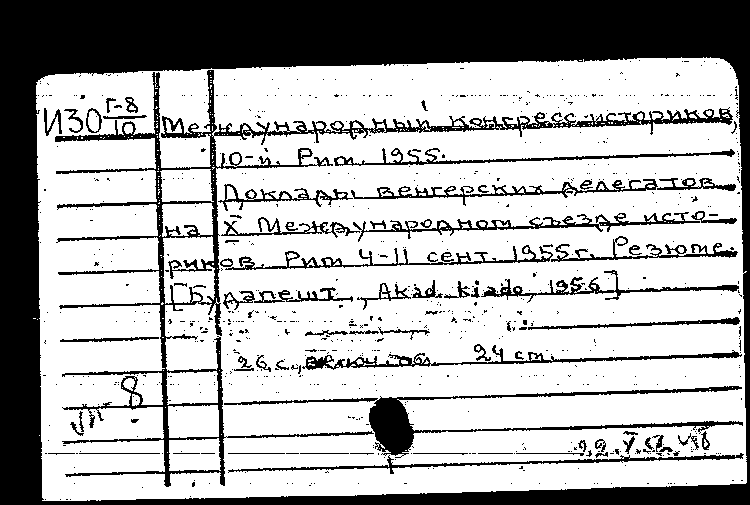 ИЗО Г-8/10 Международный конгресс историков,
10-й. Рим. 1955.
Доклады венгерских делегатов
на X Международном съезде исто-
риков. Рим 4-11 сент. 1955г. Резюме.
[Будапешт, Akad. kiado, 1956]
26 с., включ. обл. 24 cm.
8
22.V